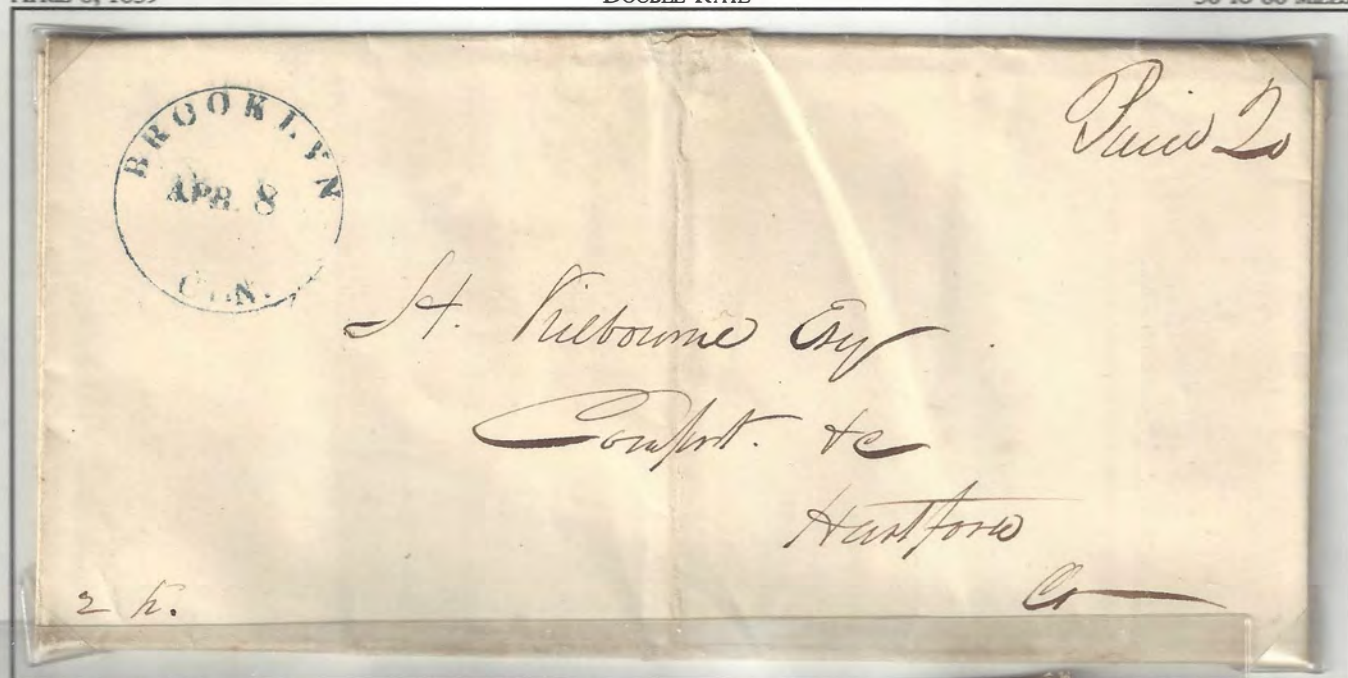 DOUBLE RATE
BROOKLYN
APR. 8
Paid 20
H. Kilbourne Esq
Compt. &c
Hartford
Ct